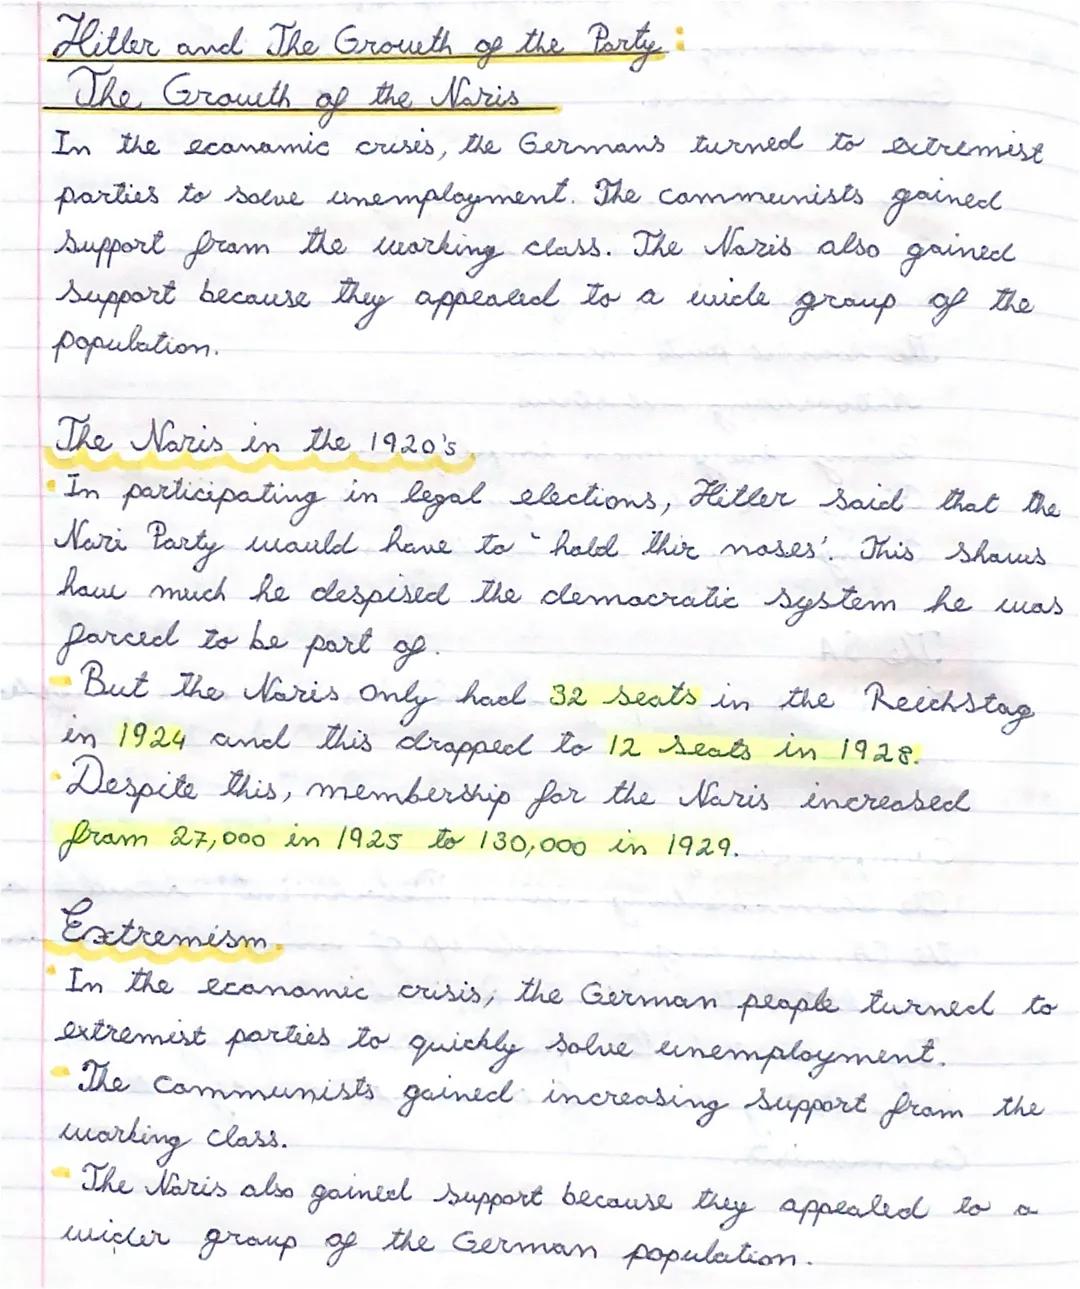 Hitler and The Growth of the Party:
The Growth of the Nazis
In the economic crisis, the Germans turned to extremist
parties to solve unemployment. The communists gained
support from the working class. The Nazis also gained
support because they appealed to a wide group of the
population.
The Nazis in the 1920's.
• In participating in legal elections, Hitler said that the
Nazi Party would have to 'hold thir noses'. This shows
how much he despised the democratic system he was
forced to be part of.
- But the Nazis only had 32 seats in the Reichstag
in 1924 and this dropped to 12 seats in 1928.
• Despite this, membership for the Nazis increased
from 27,000 in 1925 to 130,000 in 1929.
Extremism.
• In the economic crisis, the German people turned to
extremist parties to quickly solve unemployment.
- The Communists gained increasing support from the
working class.
- The Nazis also gained support because they appealed to a
wider group of the German population.